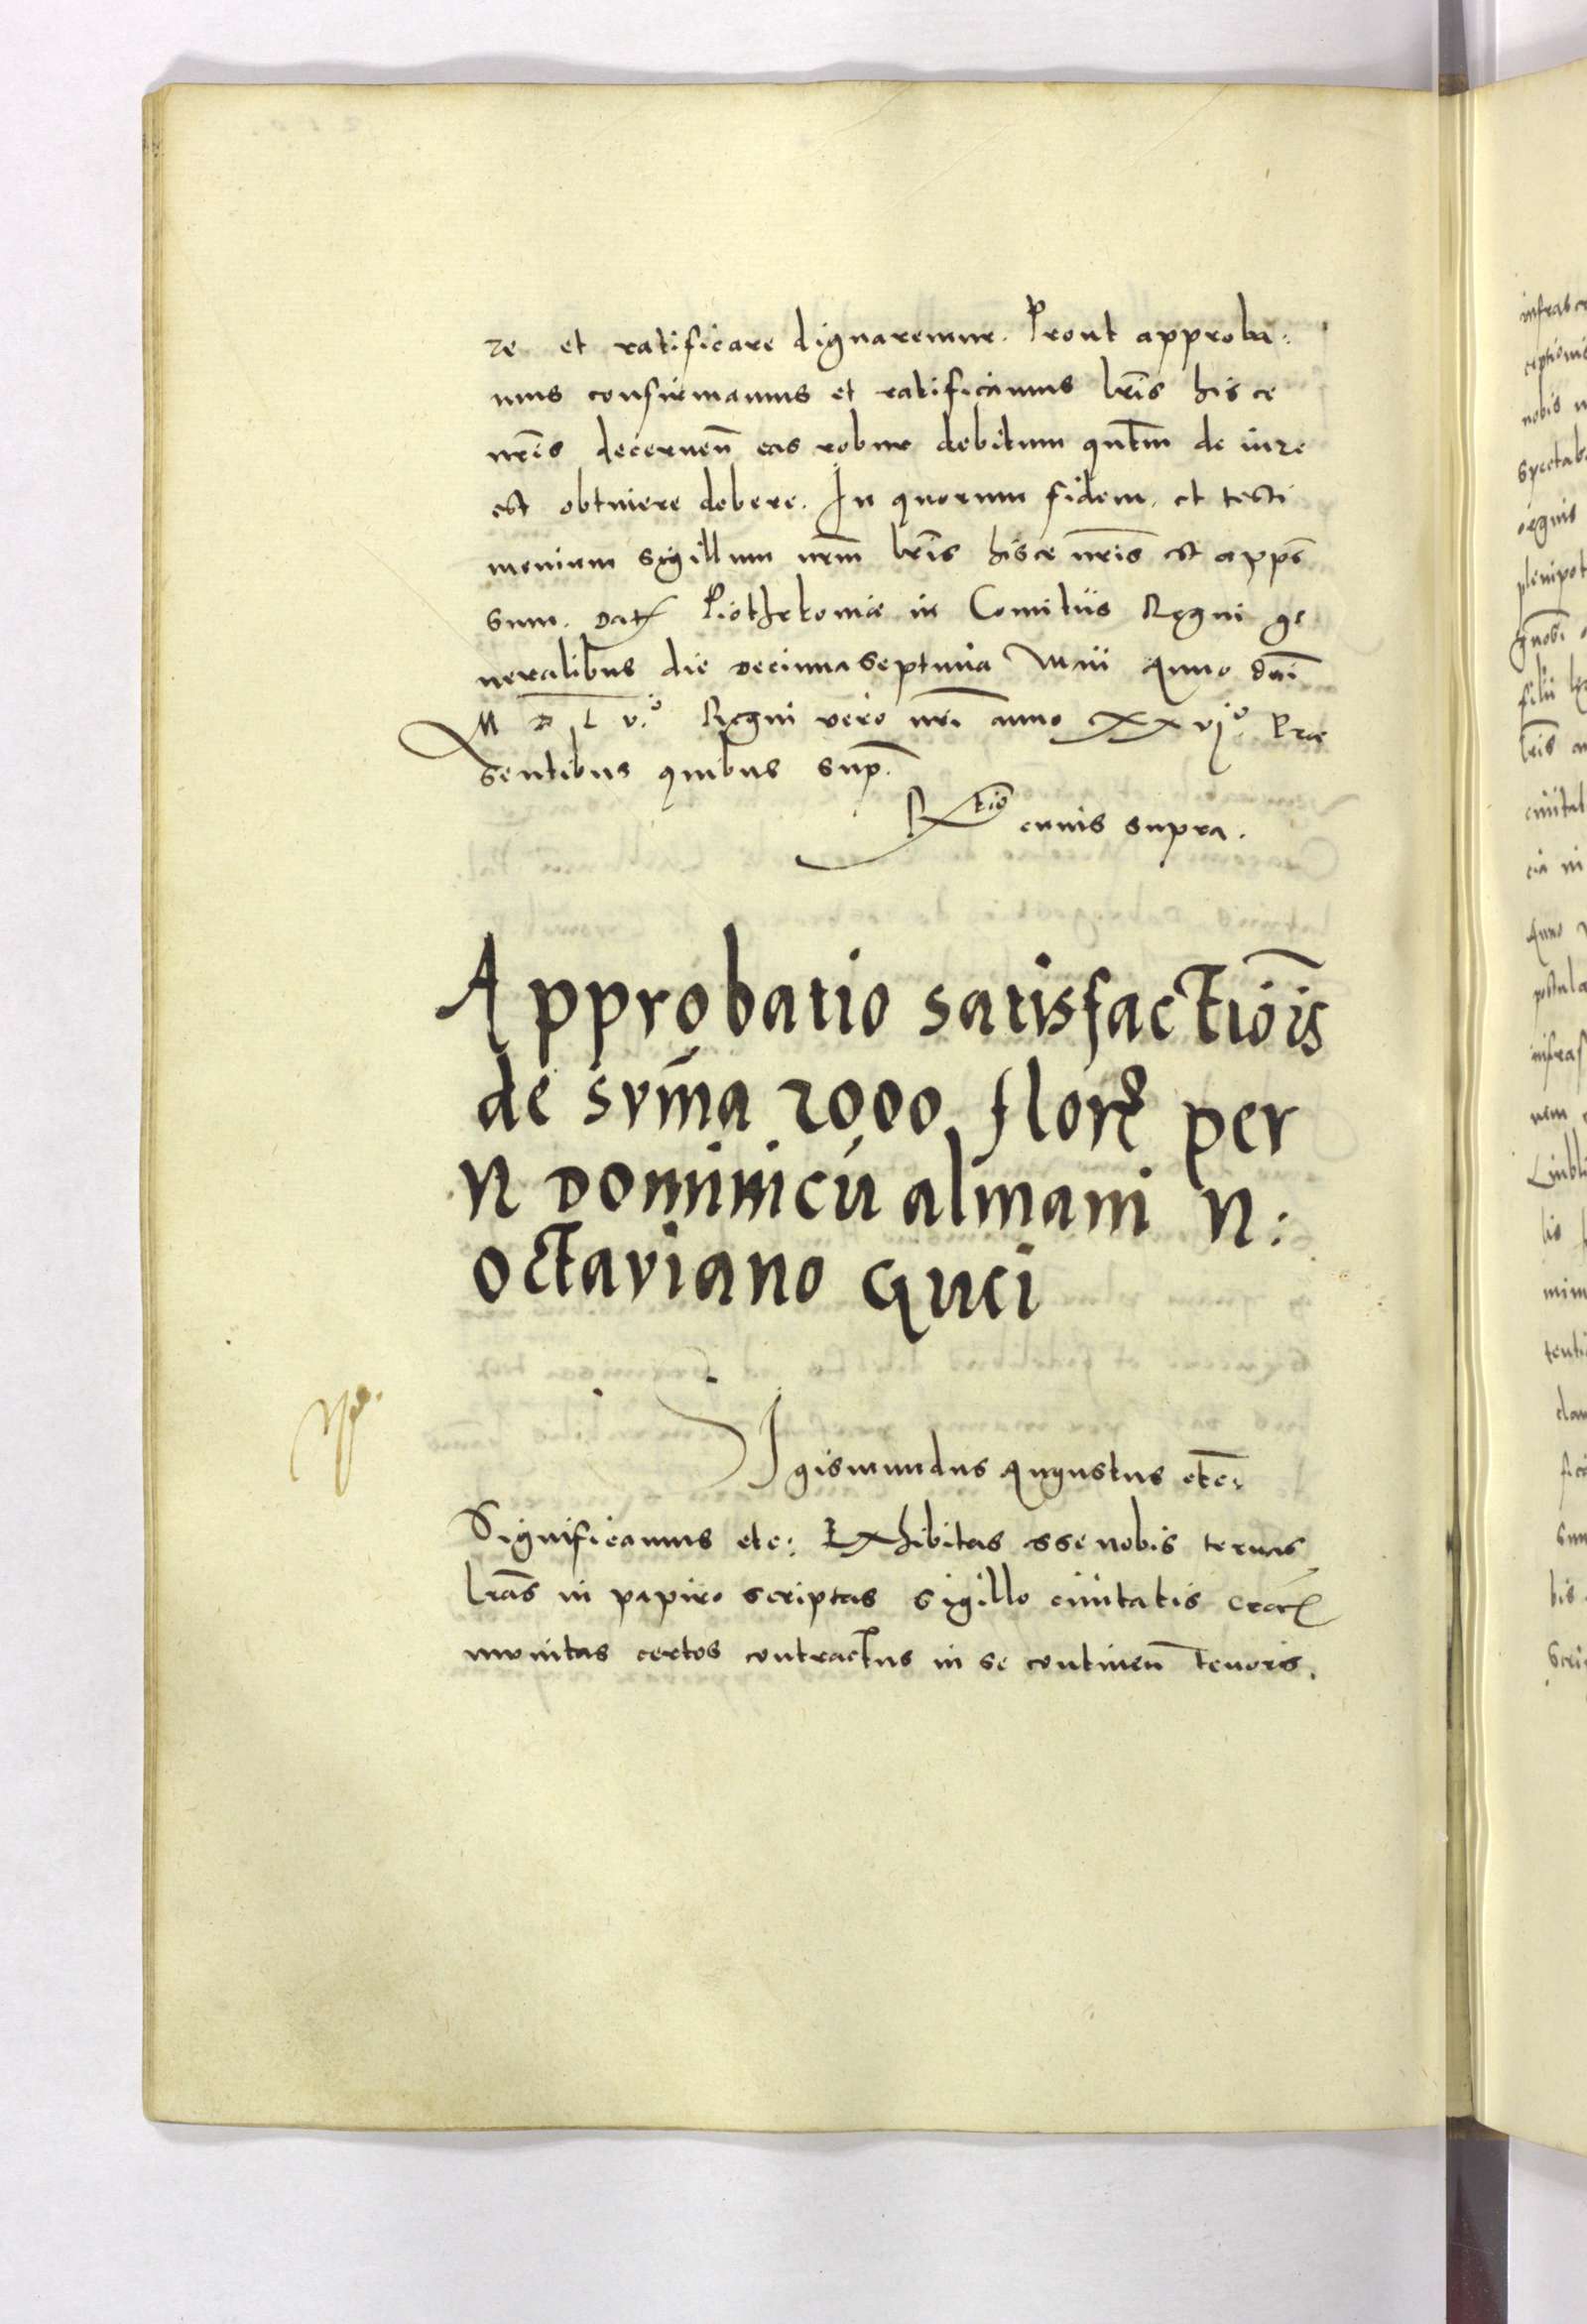 re et ratificare dignaremur. Prout approba:
mus confirmamus et ratificamus lr̃is hisce
nr̃is decernen̄ eas robur debitum qn̄tm de iure
est obtinere debere. In quorum fidem. et testi
monium sigillum nr̃m lr̃is hisce nr̃is est appē
sum. Dat Piothrkoviæ in Comitiis Regni ge
neralibus die Decima septima Maii Anno dn̄i
M D L v.º Regni vero nr̃i anno XXvjº. Præ
sentibus quibus sup̄.
Rtio cuius supra.
Approbatio satisfactiōīs
de sum̄a 2000 flor per
N Dominicū almani N:
octaviano Guci
SIgismundus Augustus etc:
Significamus etc: Exhibitas esse nobis ternas
lr̃as in papiro scriptas sigillo civitatis Crac
munitas certos contractus in se continen̄ tenoris.
infrascr
ceptionis
nobis
spectab
plenipot
gnosc
filii
lr̃is
civitat
cia in
Anno
postula
infras
nem
Lubli
lis
tenti
bis
scri